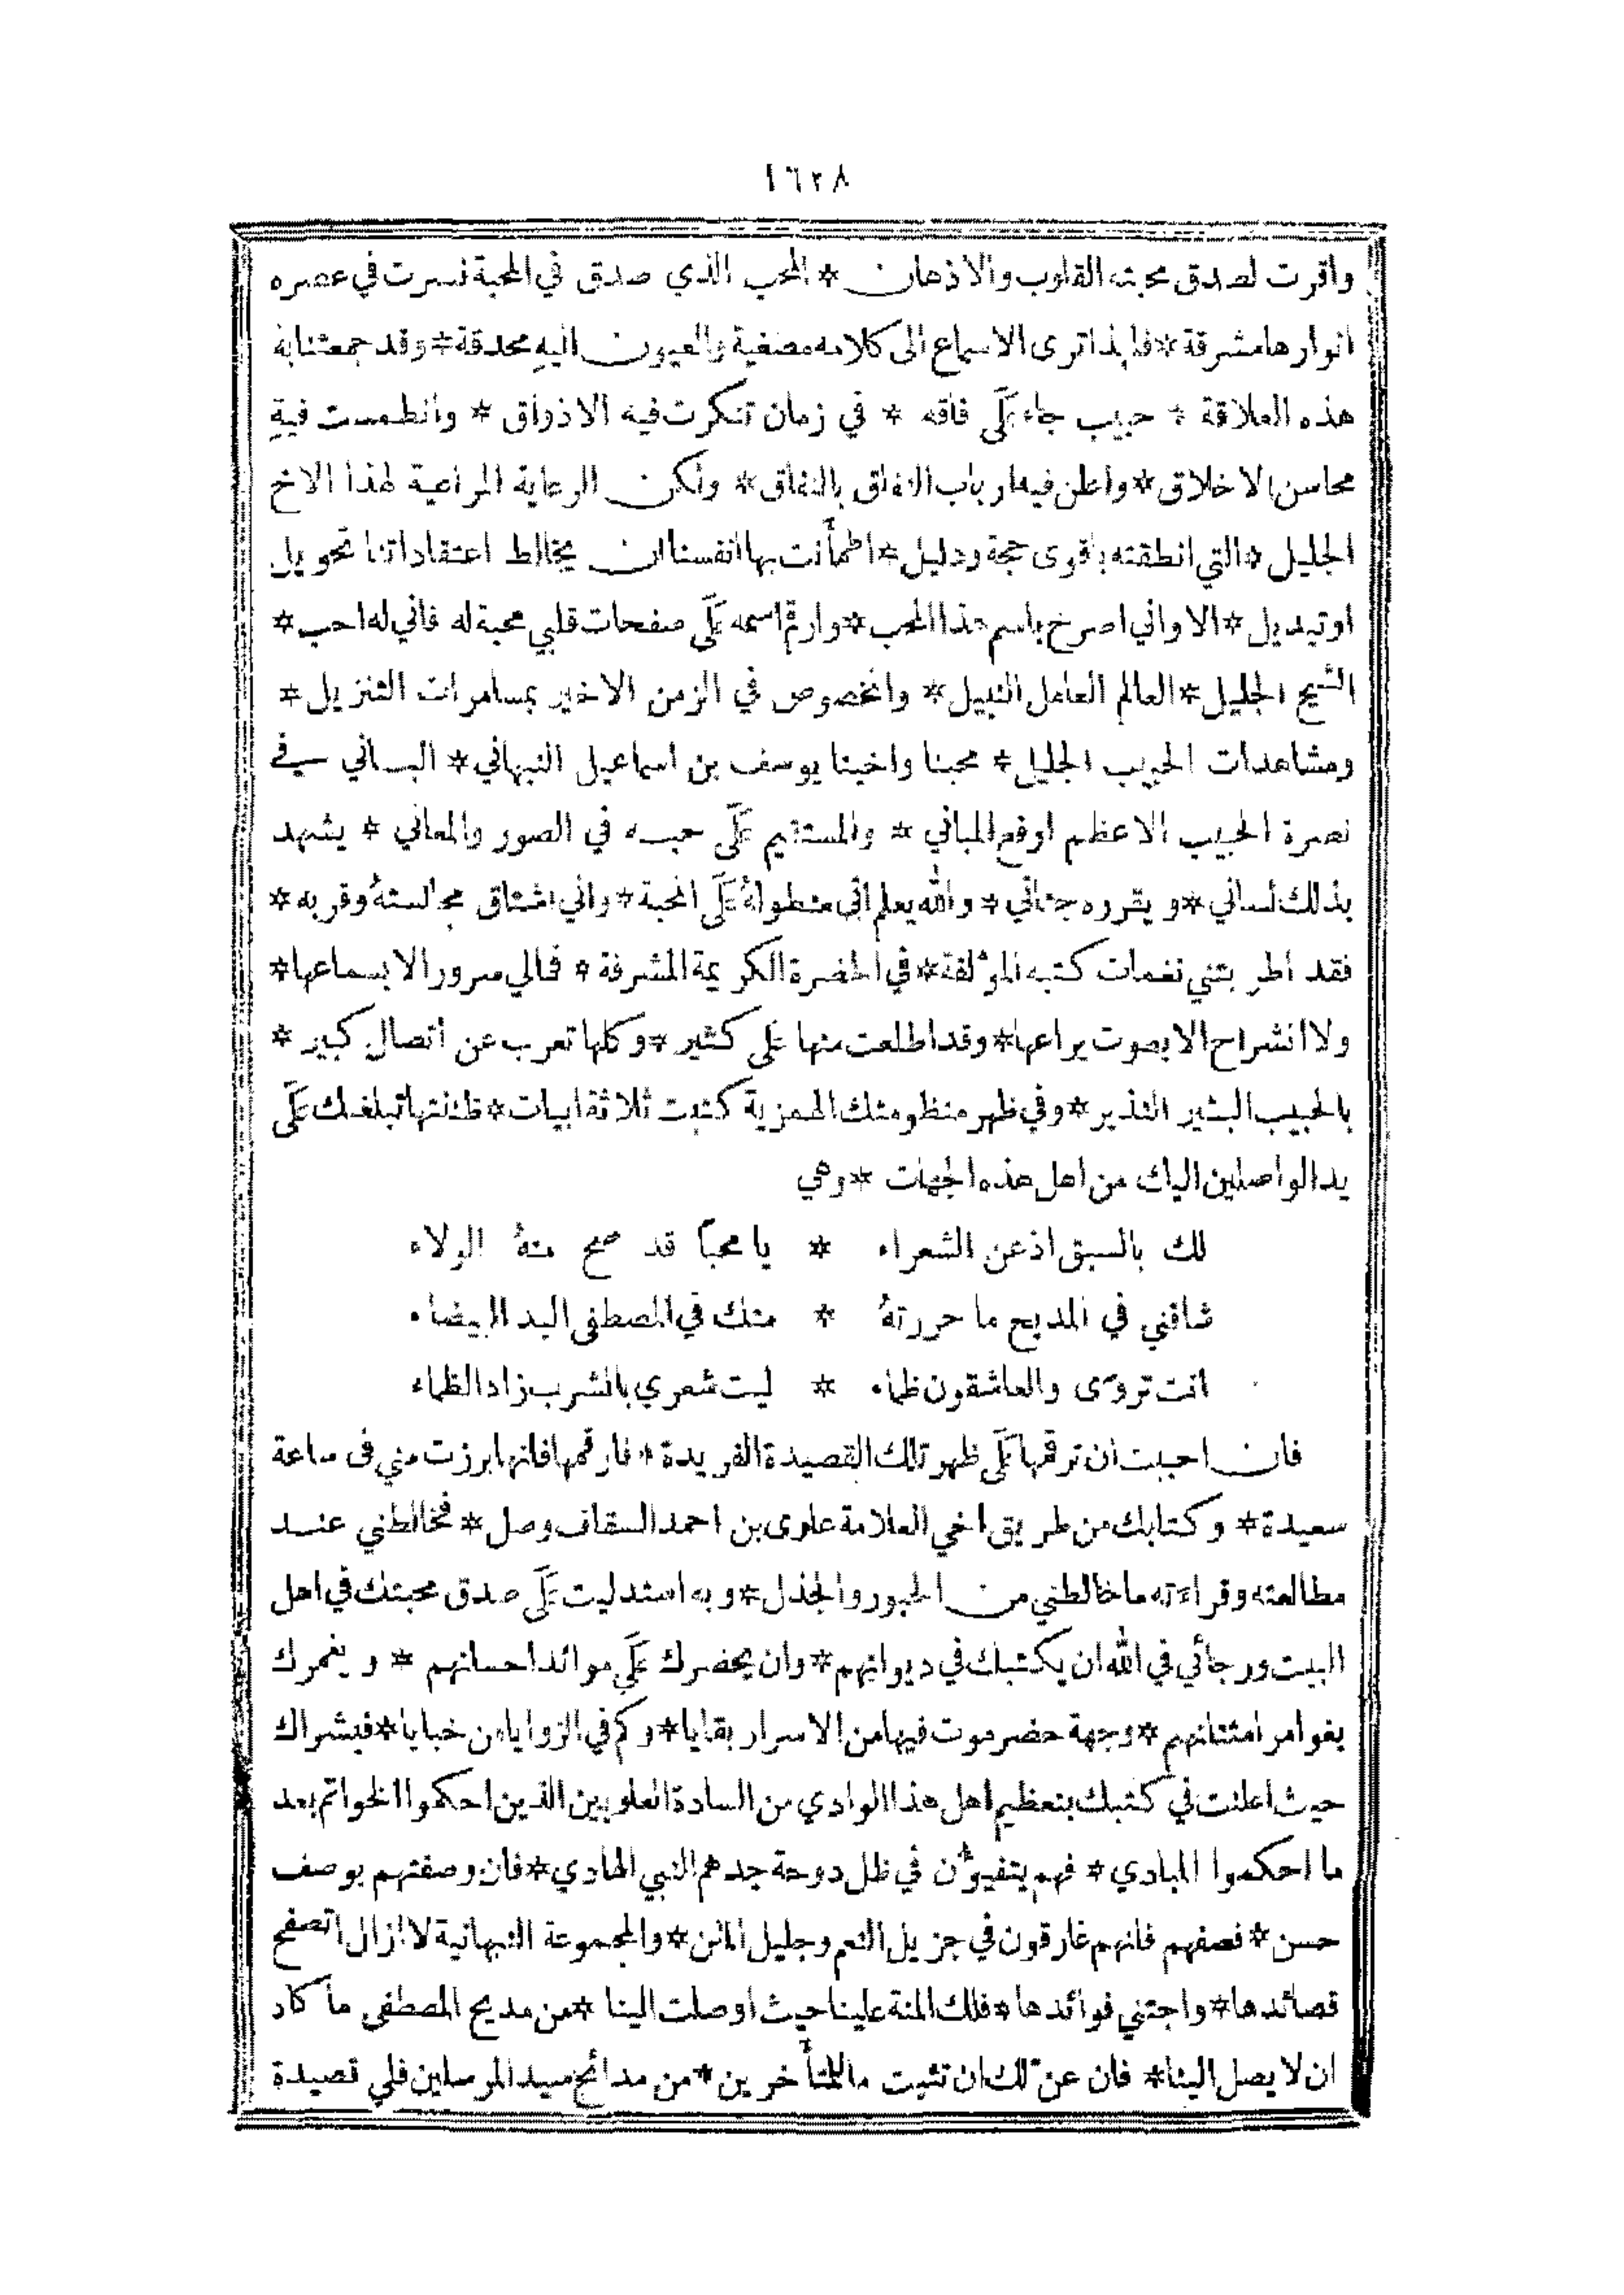 ١٦٢٨
واقرت لصدق محبته القلوب والاذهان * المحب الذي صدق في المحبة فسرت في عصره
انوارها مشرقة * فلهذا ترى الاسماع الى كلامه مصغية والعيون اليهِ محدقة * وقد جمعتنا به
هذه العلاقة * حبيب جاء عَلَى فاقه * في زمان تنكرت فيه الاذواق * وانطمست فيهِ
محاسن الاخلاق * واعلن فيه ارباب النفاق بالنفاق * ولكن الرعاية المراعية لهذا الاخ
الجليل * التي انطقته باقوى حجة ودليل * اطمأَنت بها انفسنا ان يخالط اعتقاداتنا تحويل
او تبديل * الا واني اصرخ باسم هذا المحب * وارقم اسمه عَلَى صفحات قلبي محبة له فاني له احب *
الشيخ الجليل * العالم العامل النبيل * والمخصوص في الزمن الاخير بمسامرات التنزيل *
ومشاهدات الحبيب الجليل * محبنا واخينا يوسف بن اسماعيل النبهاني * الباني في
نصرة الحبيب الاعظم ارفع المباني * والمستقيم عَلَى حبه في الصور والمعاني * يشهد
بذلك لساني * ويقرره جناني * والله يعلم اني منطو لهُ عَلَى المحبة * واني اشتاق مجالستهُ وقربه *
فقد اطربتني نغمات كتبه المؤلفة * في الحضرة الكريمة المشرفة * فمالي سرور الا بسماعها *
ولا انشراح الا بصوت يراعها * وقد اطلعت منها عَلَى كثير * وكلها تعرب عن اتصال كبير *
بالحبيب البشير النذير * وفي ظهر منظومتك الهمزية كتبت ثلاثة ابيات * ظننتها تبلغك عَلَى
يد الواصلين اليك من اهل هذه الجهات * وهي
لك بالسبق اذعن الشعراء * يا محباً قد صح منهُ الولاء
شاقني في المديح ما حررتهُ * منك في المصطفى اليد البيضاء
انت تروّى والعاشقون ظماء * ليت شعري بالشرب زاد الظماء
فان احببت ان ترقمها عَلَى ظهر تلك القصيدة الفريدة * فارقمها فانها برزت مني في ساعة
سعيدة * وكتابك من طريق اخي العلامة علوى بن احمد السقاف وصل * فخالطني عند
مطالعته وقراءته ما خالطني من الحبور والجذل * وبه استدليت عَلَى صدق محبتك في اهل
البيت ورجائي في الله ان يكتبك في ديوانهم * وان يحضرك عَلَى موائد احسانهم * ويغمرك
بغوامر امتنانهم * وجهة حضرموت فيها من الاسرار بقايا * وكم في الزوايا من خبايا * فبشراك
حيث اعلنت في كتبك بتعظيم اهل هذا الوادي من السادة العلويين الذين احكموا الخواتم بعد
ما احكموا المبادي * فهم يتفيؤُن في ظل دوحة جدهم النبي الهادي * فان وصفتهم بوصف
حسن * فصفهم فانهم غارقون في جزيل النعم وجليل المنن * والمجموعة النبهانية لا ازال اتصفح
قصائدها * واجتني فوائدها * فلك المنة علينا حيث اوصلت الينا * من مديح المصطفى ما كاد
ان لا يصل الينا * فان عنّ لك ان تثبت ما للمتأَخرين * من مدائح سيد المرسلين فلي قصيدة